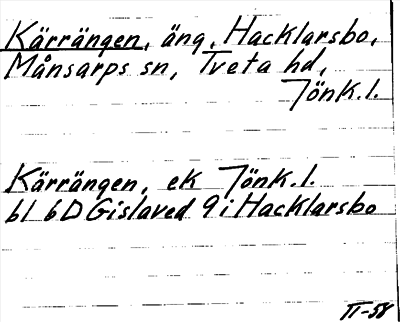 Kärrängen, äng, Hacklarsbo,
Månsarps sn, Tveta hd,
Jönk.l.
Kärrängen, ek Jönk.l.
bl 6D Gislaved 9i Hacklarsbo
II-58